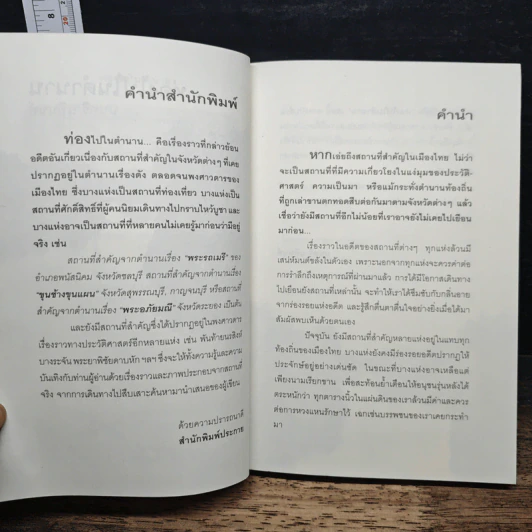 คำนำสำนักพิมพ์
ท่องไปในตำนาน... คือเรื่องราวที่กล่าวย้อน
อดีตอันเกี่ยวเนื่องกับสถานที่สำคัญในจังหวัดต่างๆ ที่เคย
ปรากฏอยู่ในตำนานเรื่องดัง ตลอดจนพงศาวดารของ
เมืองไทย ซึ่งบางแห่งเป็นสถานที่ท่องเที่ยว บางแห่งเป็น
สถานที่ศักดิ์สิทธิ์ที่ผู้คนนิยมเดินทางไปกราบไหว้บูชา และ
บางแห่งอาจเป็นสถานที่ที่หลายคนไม่เคยรู้มาก่อนว่ามีอยู่
จริง เช่น
สถานที่สำคัญจากตำนานเรื่อง "พระรถเมรี" ของ
อำเภอพนัสนิคม จังหวัดชลบุรี สถานที่สำคัญจากตำนานเรื่อง
"ขุนช้างขุนแผน" จังหวัดสุพรรณบุรี, กาญจนบุรี หรือสถานที่
สำคัญจากตำนานเรื่อง "พระอภัยมณี" จังหวัดระยอง เป็นต้น
และยังมีสถานที่สำคัญซึ่งได้ปรากฏอยู่ในพงศาวดาร
เรื่องราวทางประวัติศาสตร์อีกหลายแห่ง เช่น พันท้ายนรสิงห์
บางระจัน พระยาพิชัยดาบหัก ฯลฯ ซึ่งจะให้ทั้งความรู้และความ
บันเทิงกับท่านผู้อ่านด้วยเรื่องราวและภาพประกอบจากสถานที่
จริง จากการเดินทางไปสืบเสาะค้นหามานำเสนอของผู้เขียน
ด้วยความปรารถนาดี
สำนักพิมพ์ประกาย
คำนำ
หากเอ่ยถึงสถานที่สำคัญในเมืองไทย ไม่ว่า
จะเป็นสถานที่ที่มีความเกี่ยวโยงในแง่มุมของประวัติ-
ศาสตร์ ความเป็นมา หรือแม้กระทั่งตำนานท้องถิ่น
ที่ถูกเล่าขานตกทอดสืบต่อกันมาตามจังหวัดต่างๆ แล้ว
เชื่อว่ายังมีสถานที่อีกไม่น้อยที่เราอาจยังไม่เคยไปเยือน
มาก่อน...
เรื่องราวในอดีตของสถานที่ต่างๆ ทุกแห่งล้วนมี
เสน่ห์มนต์ขลังในตัวเอง เพราะนอกจากทุกแห่งจะควรค่าต่อ
การรำลึกถึงเหตุการณ์ที่ผ่านมาแล้ว การได้มีโอกาสเดินทาง
ไปเยือนยังสถานที่เหล่านั้น จะทำให้เราได้ซึมซับกับกลิ่นอาย
จากร่องรอยแห่งอดีต และรู้สึกตื่นตาตื่นใจอย่างยิ่งเมื่อได้มา
สัมผัสพบเห็นด้วยตนเอง
ปัจจุบัน ยังมีสถานที่สำคัญหลายแห่งอยู่ในแทบทุก
ท้องถิ่นของเมืองไทย บางแห่งยังคงมีร่องรอยอดีตปรากฏให้
ประจักษ์อยู่อย่างเด่นชัด ในขณะที่บางแห่งอาจเหลือแค่
เพียงนามเรียกขาน เพื่อสะท้อนย้ำเตือนให้อนุชนรุ่นหลังได้
ตระหนักว่า ทุกตารางนิ้วในแผ่นดินของเราล้วนมีค่าและควร
ต่อการหวงแหนรักษาไว้ เฉกเช่นบรรพชนของเราเคยกระทำ
มา
8
20